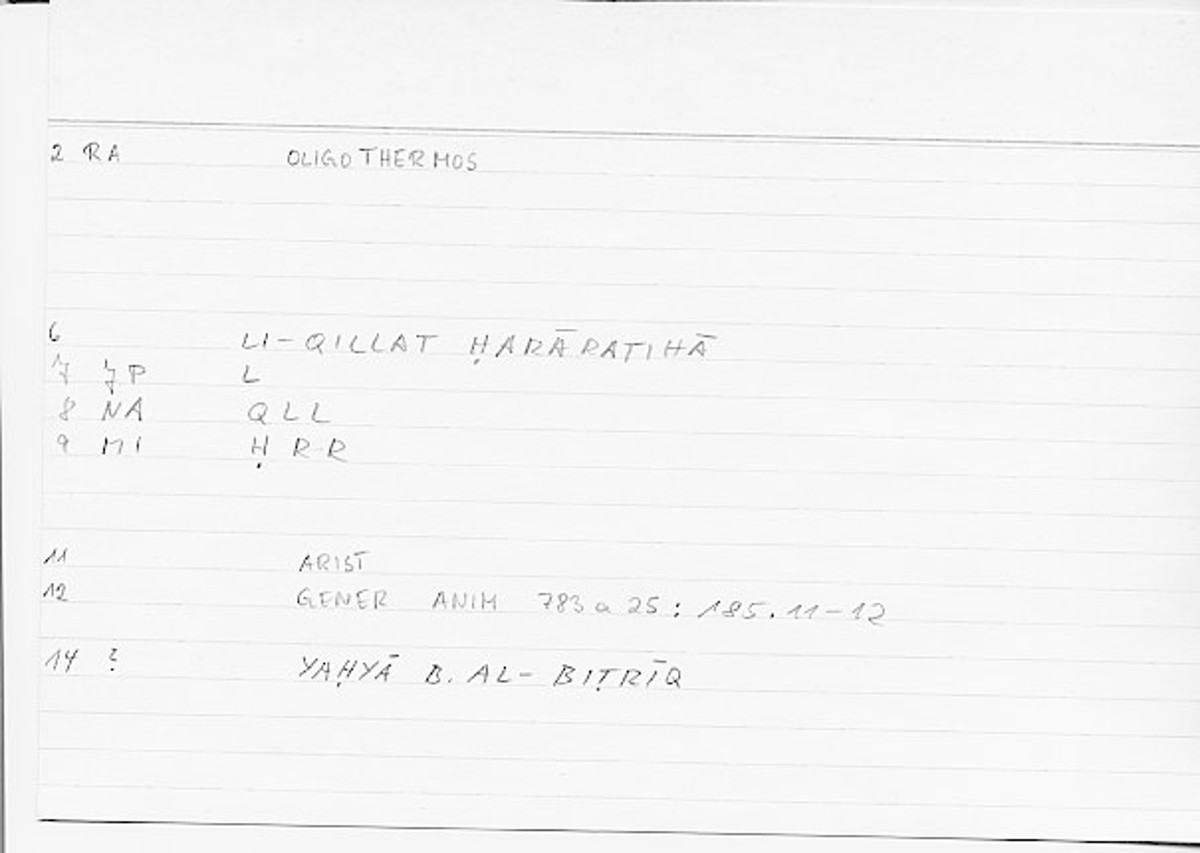 2 RA OLIGOTHERMOS
6 LI-QILLAT ḤARĀRATIHĀ
7 JP L
8 NA QLL
9 MI ḤRR
11 ARIST
12 GENER ANIM 783a25: 185.11-12
14 ? YAḤYĀ B. AL-BIṬRĪQ